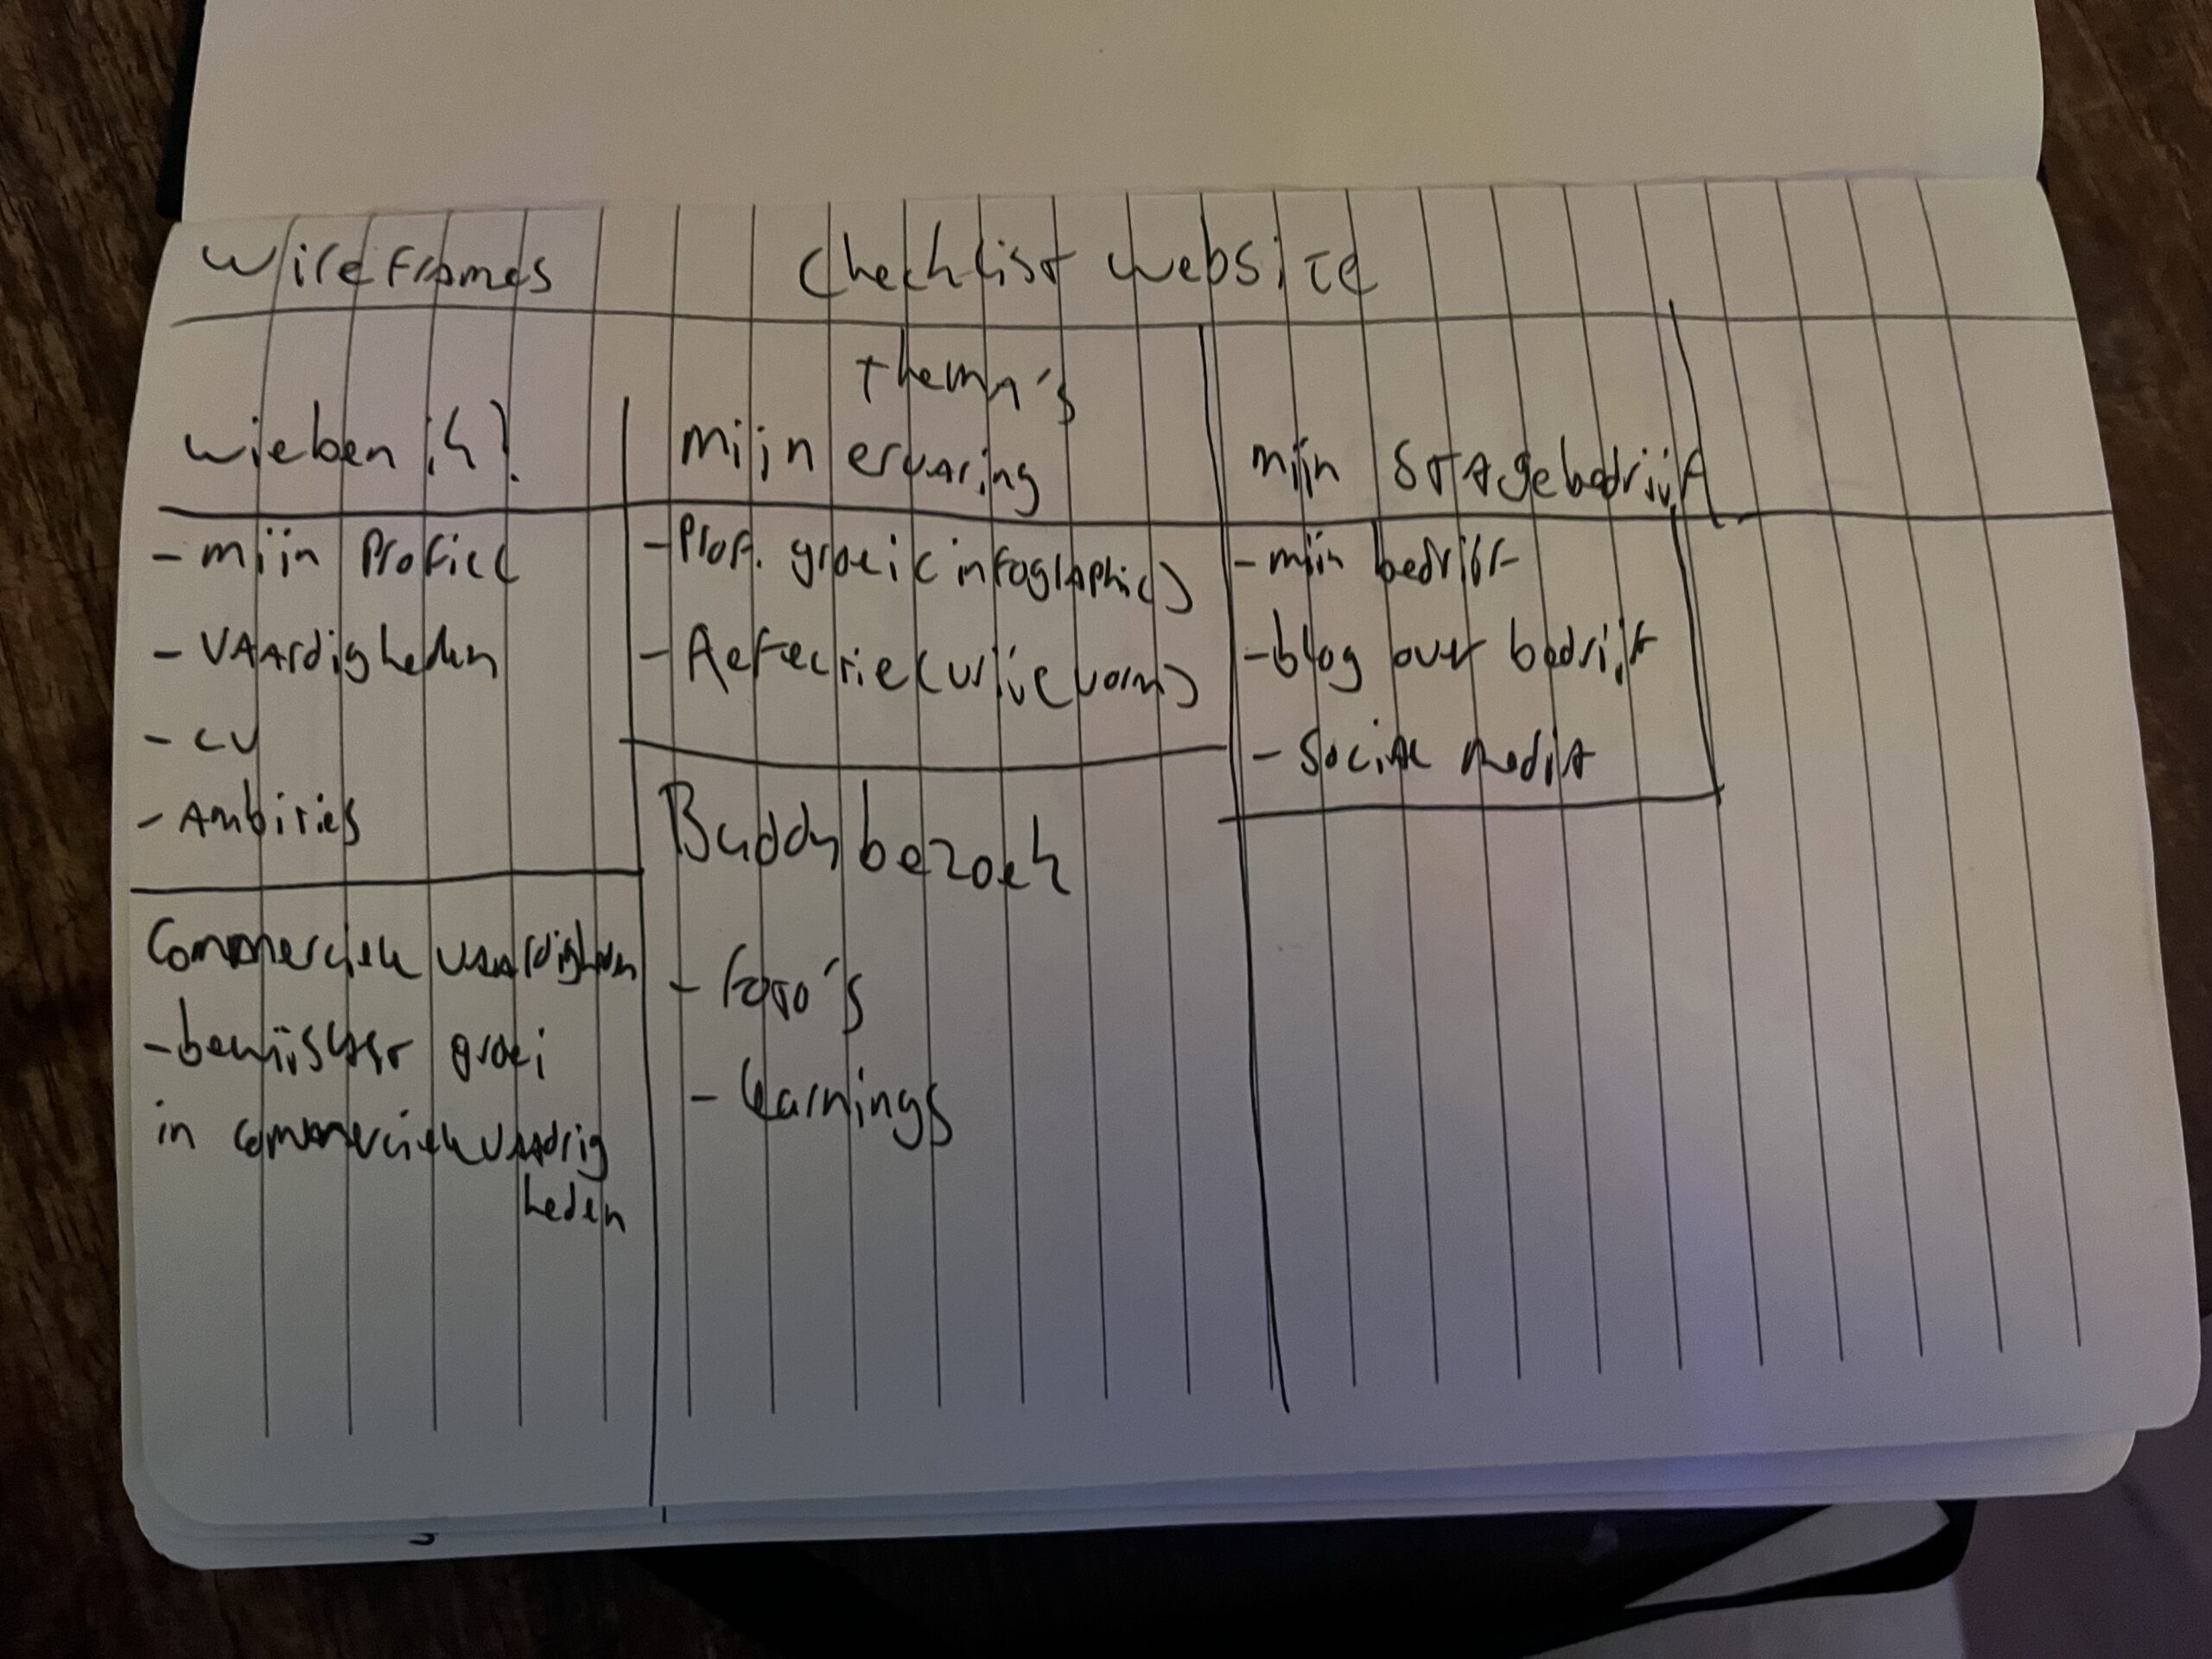 wireframes
Checklist website
thema's
wie ben ik?
- mijn Profiel
- VAArdigheden
- CV
- Ambities
Commerciele vaardigheden
- bewijslast groei
in commerciele vaardig
heden
mijn ervaring
- Prof. groei (infographic)
- Reflectie (vrije vorm)
Buddy bezoek
- foto's
- learnings
mijn STAgebedrijf
- mijn bedrijf
- blog over bedrijf
- Social media